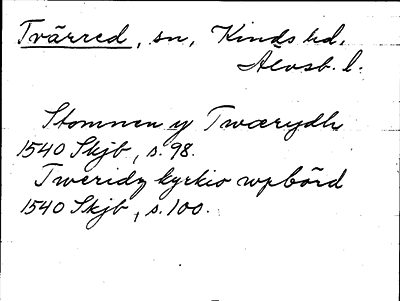 Tvärred, sn, Kinds hd.
Älvsb. l.
Stomnen y Twærydh
1540 Skjb, s. 98.
Tweridz kyrkio wpbörd
1540 Skjb, s. 100.